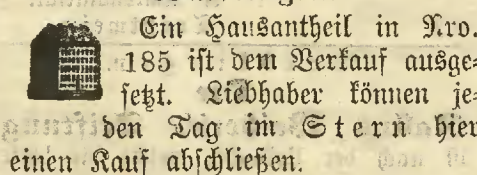 Ein Hausantheil in Nro.
185 ist dem Verkauf ausge=
setzt. Liebhaber können je=
den Tag im Stern hier
einen Kauf abschließen.